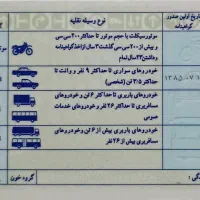 تاریخ اولین صدور
گواهینامه
نوع وسیله نقلیه
موتورسیکلت با حجم موتور تا حداکثر ۲۰۰ سی سی
و بیش از ۲۰۰ سی سی گذشت ۲ سال از اخذ گواهینامه
و داشتن ۲۳ سال تمام
خودروهای سواری تا حداکثر ۹ نفر و وانت تا
حداکثر ۳/۵ تن (شخصی)
خودروهای باربری تا حداکثر ۶ تن و خودروهای
مسافربری تا حداکثر ۲۶ نفر و خودروهای خدمات
عمومی
خودروهای باربری بیش از ۶ تن و خودروهای
مسافربری بیش از ۲۶ نفر
گروه خون